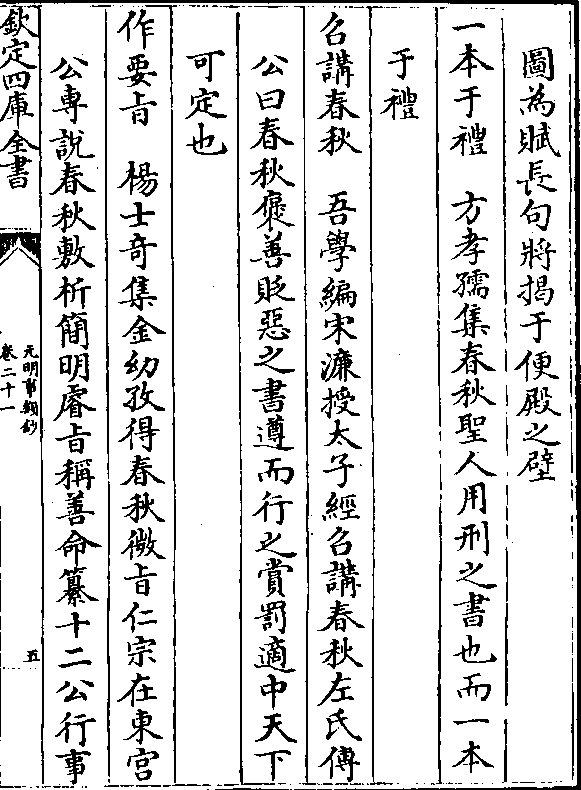 圖為賦長句將揭于便殿之壁
一本于禮　方孝孺集春秋聖人用刑之書也而一本
于禮
召講春秋　吾學編宋濂授太子經召講春秋左氏傳
公曰春秋褒善貶惡之書遵而行之賞罰適中天下
可定也
作要旨　楊士奇集金幼孜得春秋微旨仁宗在東宫
公專說春秋敷析簡明睿旨稱善命纂十二公行事
欽定四庫全書
元明事類鈔
卷二十一
五